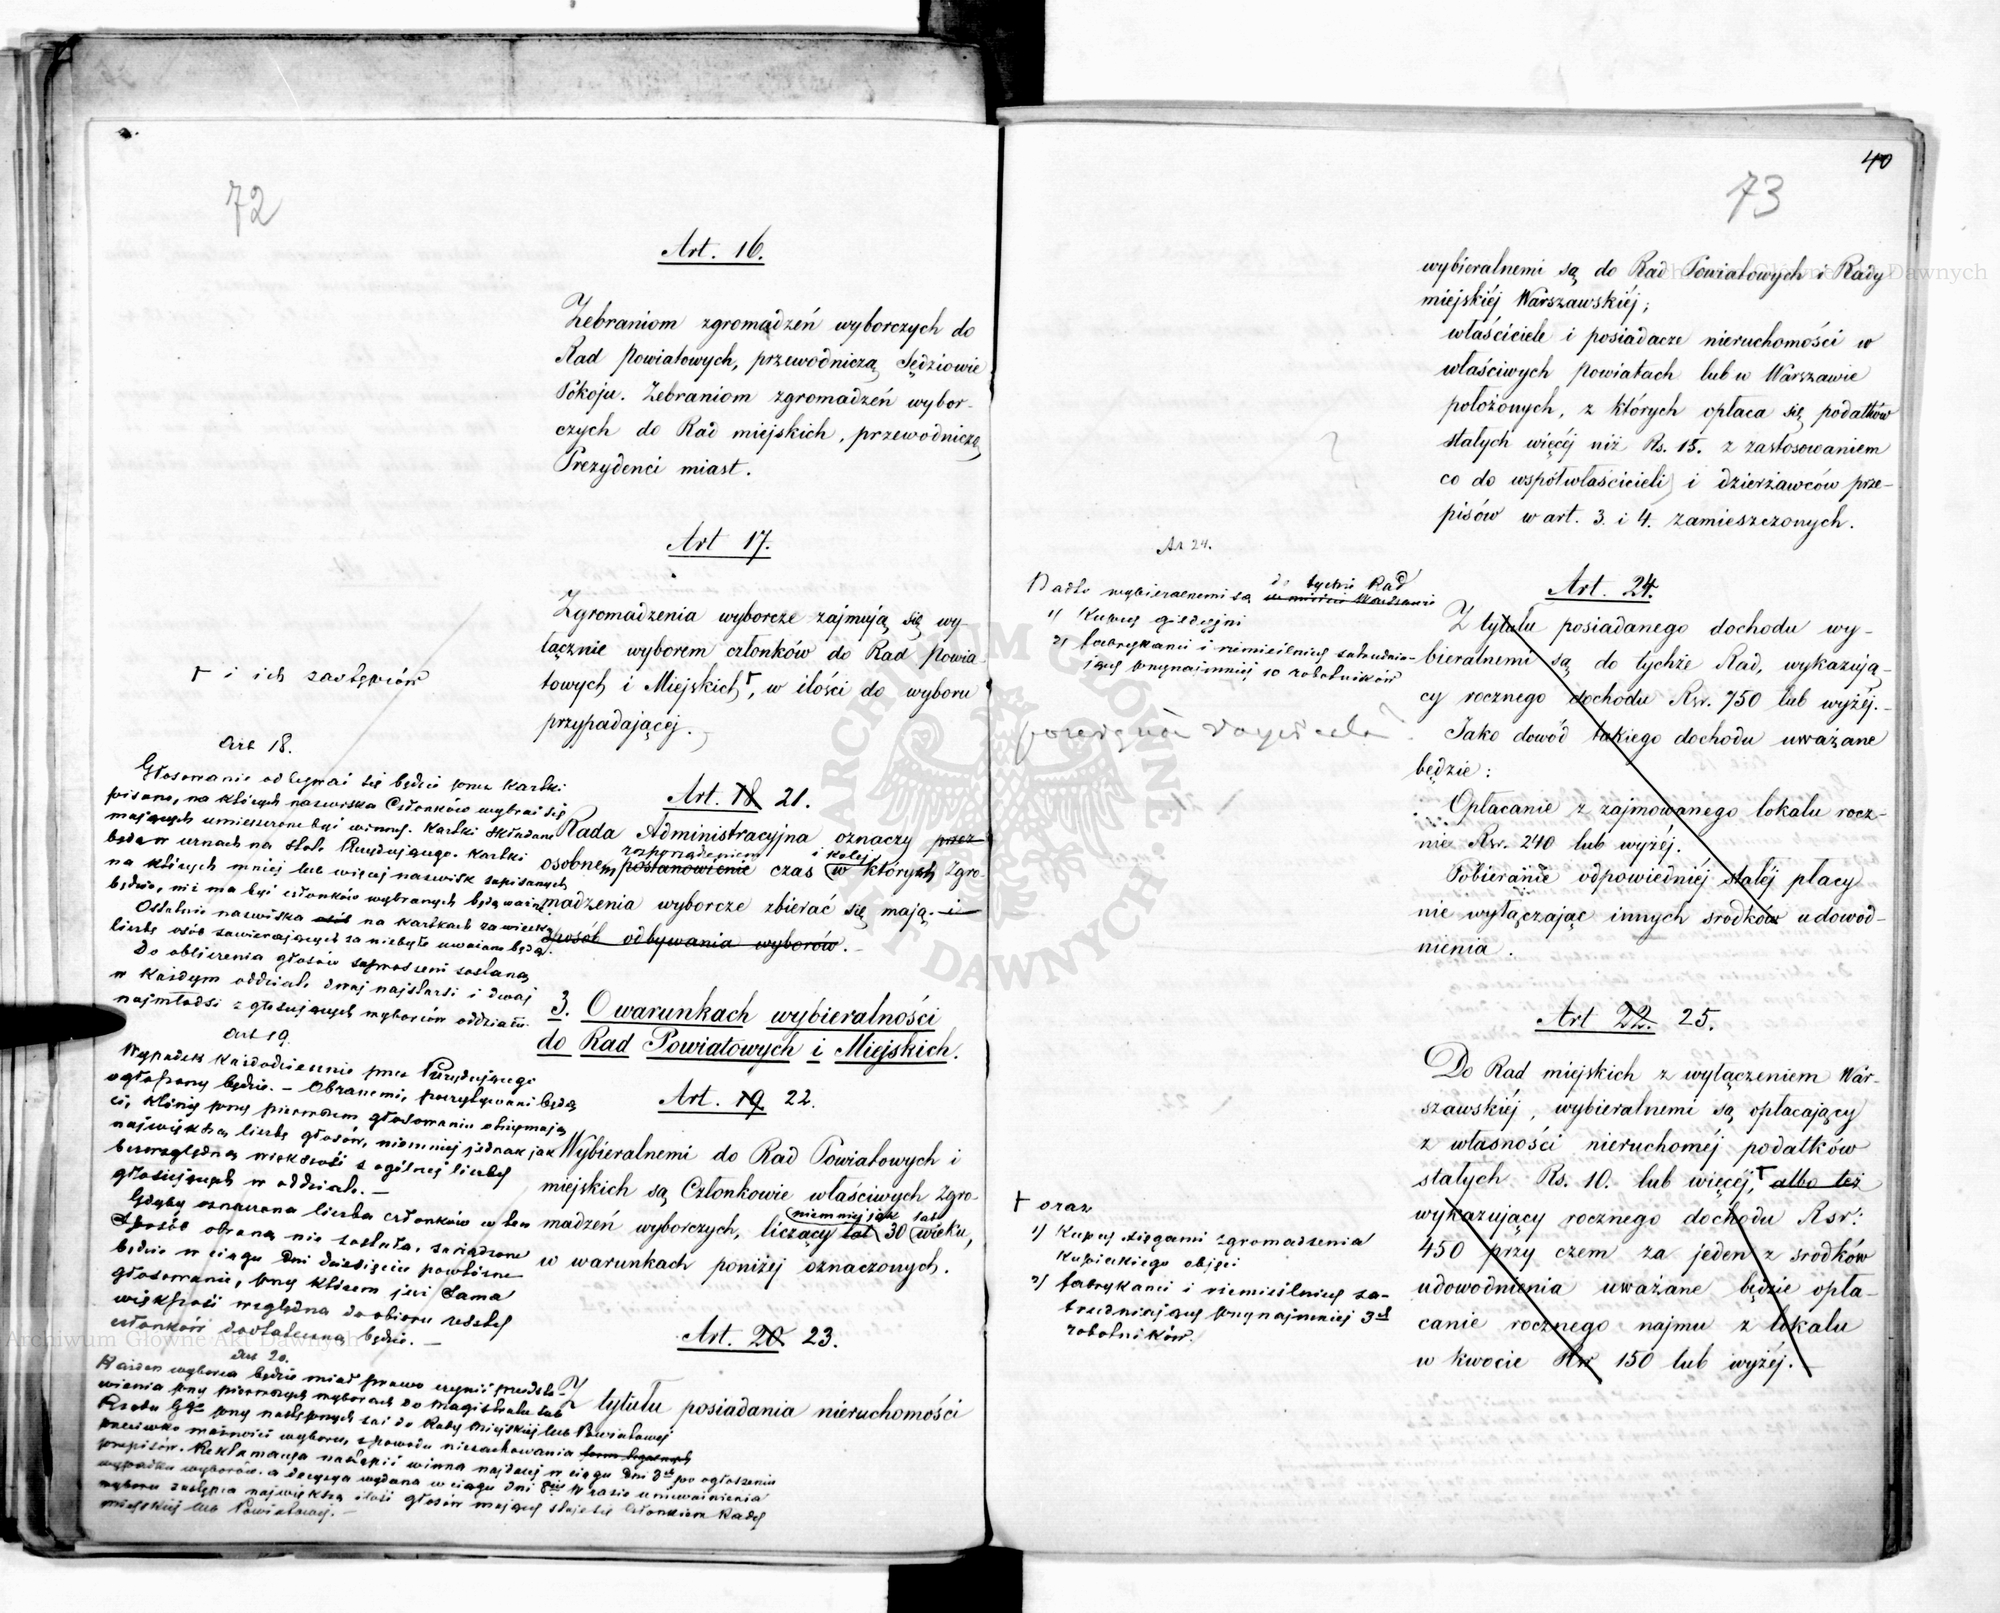 72
Art. 16.
Zebraniom zgromadzeń wyborczych do
Rad Powiatowych, przewodniczą Sędziowie
Pokoju. Zebraniom zgromadzeń wybor-
czych do Rad miejskich, przewodniczą
Prezydenci miast.
Art 17.
Zgromadzenia wyborcze zajmują się wy-
łącznie wyborem członków do Rad Powia-
towych i Miejskich, w ilości do wyboru
przypadającej.
i ich zastępców
Art 18.
Głosowanie odbywać się będzie przez kartki
pisane, na których nazwiska Członków wybrać się
mających umieszczone być winny. Kartki składane
będą w urnach na stole Prezydującego. Kartki
na których mniej lub więcej nazwisk zapisanych
będzie, niż ma być członków wybranych będą ważne.
Ostatnie nazwiska osób na kartkach za wielką
liczbę osób zawierających za niebyłe uważane będą.
Do obliczenia głosów zaproszeni zostaną
w każdym oddziale dwaj najstarsi i dwaj
najmłodsi z głosujących wyborców oddziału.
Art 19.
Wypadek każdodziennie przez Prezydującego
ogłoszony będzie. – Obranemi, poczytywani będą
ci, którzy przy pierwszem głosowaniu otrzymają
największą liczbę głosów, niemniej jednak jak
bezwzględną większość z ogólnej liczby
głosujących w oddziale. –
Gdyby oznaczona liczba członków w ten
sposób obraną nie została, zarządzone
będzie w ciągu dni dziesięciu powtórne
głosowanie, przy którem już sama
większość względna do obioru reszty
członków dostateczną będzie. –
Art 20.
Każden wyborca będzie miał prawo czynić przedsta-
wienia przy pierwszych wyborach do Magistratu lub
Rządu Gub. przy następnych zaś do Rady Miejskiej lub Powiatowej
przeciwko ważności wyboru, z powodu niezachowania form legalnych
przepisów. Reklamacya nastąpić winna najdalej w ciągu dni 3ch po ogłoszeniu
wypadku wyborów. a decyzya wydana w ciągu dni 8miu W razie unieważnienia
wyboru zastępca największą ilość głosów mający staje się Członkiem Rady
miejskiej lub Powiatowej. –
Art. 18 21.
Rada Administracyjna oznaczy przez
rozporządzeniem i kolej
osobnem postanowienie czas w których Zgro-
madzenia wyborcze zbierać się mają. i
sposób odbywania wyborów. –
3. O warunkach wybieralności
do Rad Powiatowych i Miejskich.
Art. 19 22.
Wybieralnemi do Rad Powiatowych i
miejskich są Członkowie właściwych Zgro-
niemniej jak lat
madzeń wyborczych, liczący lat 30 wieku,
w warunkach poniżej oznaczonych.
Art. 20 23.
Z tytułu posiadania nieruchomości
40
73
wybieralnemi są do Rad Powiatowych i Rady
miejskiéj Warszawskiéj;
właściciele i posiadacze nieruchomości w
właściwych Powiatach lub w Warszawie
położonych, z których opłaca się podatków
stałych więcéj niż Rs. 15. z zastosowaniem
co do współwłaścicieli i dzierżawców prze-
pisów w art. 3. i 4. zamieszczonych.
Ar 24.
do tychże Rad
Nadto wybieralnemi są w mieście Warszawie
1) Kupcy giełdujni
2) fabrykanci i rzemieślnicy zatrudnia-
jący przynajmniej 10 robotników
Art. 24.
Z tytułu posiadanego dochodu wy-
bieralnemi są do tychże Rad, wykazują-
cy rocznego dochodu Rsr. 750 lub wyżéj. –
Jako dowód takiego dochodu uważane
będzie:
Opłacanie z zajmowanego lokalu rocz-
nie Rsr. 240 lub wyżéj.
Pobieranie odpowiedniéj stałéj płacy
nie wyłączając innych środków udowod-
nienia.
Art 22. 25.
Do Rad miejskich z wyłączeniem War-
szawskiéj, wybieralnemi są opłacający
z własności nieruchoméj podatków
stałych Rs. 10. lub więcéj, albo też
wykazujący rocznego dochodu Rsr:
450 przy czem za jeden z środków
udowodnienia uważane będzie opła-
canie rocznego najmu z lokalu
w kwocie Rsr 150 lub wyżéj. –
oraz
1) Kupcy księgami zgromadzenia
Kupieckiego objęci
2) fabrykanci i rzemieślnicy za-
trudniający przynajmniej 3ch
robotników.
ARCHIWUM GŁÓWNE AKT DAWNYCH
Archiwum Główne Akt Dawnych